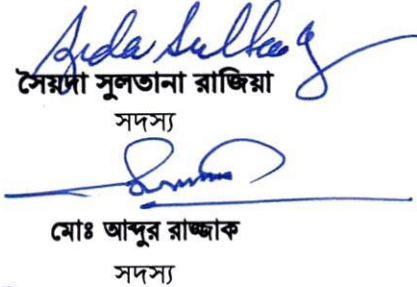 সৈয়দা সুলতানা রাজিয়া
সদস্য
মোঃ আব্দুর রাজ্জাক
সদস্য